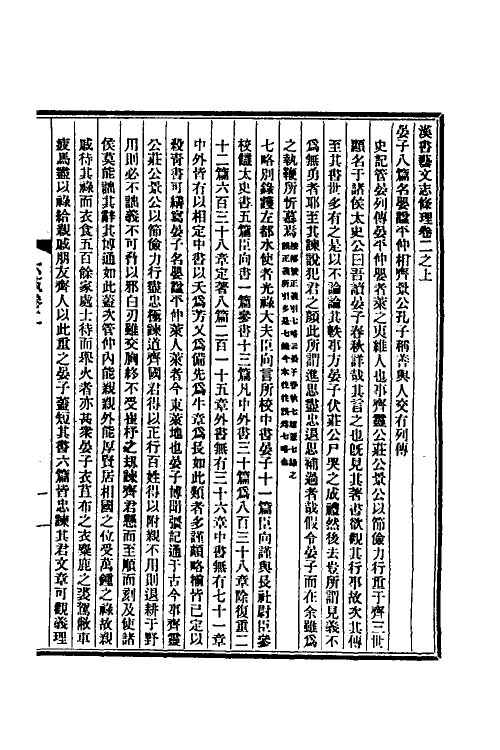 漢書藝文志條理卷二之上
晏子八篇名嬰謚平仲相齊景公孔子稱善與人交有列傳
史記管晏列傳晏平仲嬰者萊之夷維人也事齊靈公莊公景公以節儉力行重于齊三世
顯名于諸侯太史公曰吾讀晏子春秋詳哉其言之也既見其著書欲觀其行事故次其傳
至其書世多有之是以不論論其軼事方晏子伏莊公尸哭之成禮然後去豈所謂見義不
爲無勇者耶至其諫說犯君之顏此所謂進思盡忠退思補過者哉假令晏子而在余雖爲
之執鞭所忻慕焉
七略別錄護左都水使者光祿大夫臣向言所校中書晏子十一篇臣向謹與長社尉臣參
校讎太史書五篇臣向書一篇參書十三篇凡中外書三十篇爲八百三十八章除復重二
十二篇六百三十八章定著八篇二百一十五章外書無有三十六章中書無有七十一章
中外皆有以相定中書以夭爲芳又爲備先爲牛章爲長如此類者多謹頗略椾皆已定以
殺青書可繕寫晏子名嬰謚平仲萊人萊者今東萊地也晏子博聞彊記通于古今事齊靈
公莊公景公以節儉力行盡忠極諫道齊國君得以正行百姓得以附親不用則退耕于野
用則必不詘義不可脅以邪白刃雖交胸終不受崔杼之劫諫齊君懸而至順而刻及使諸
侯莫能詘其辭其博通如此蓋次管仲內能親親外能厚賢居相國之位受萬鍾之祿故親
戚待其祿而衣食五百餘家處士待而舉火者亦甚衆晏子衣苴布之衣麋鹿之裘駕敝車
疲馬盡以祿給親戚朋友齊人以此重之晏子蓋短其書六篇皆忠諫其君文章可觀義理